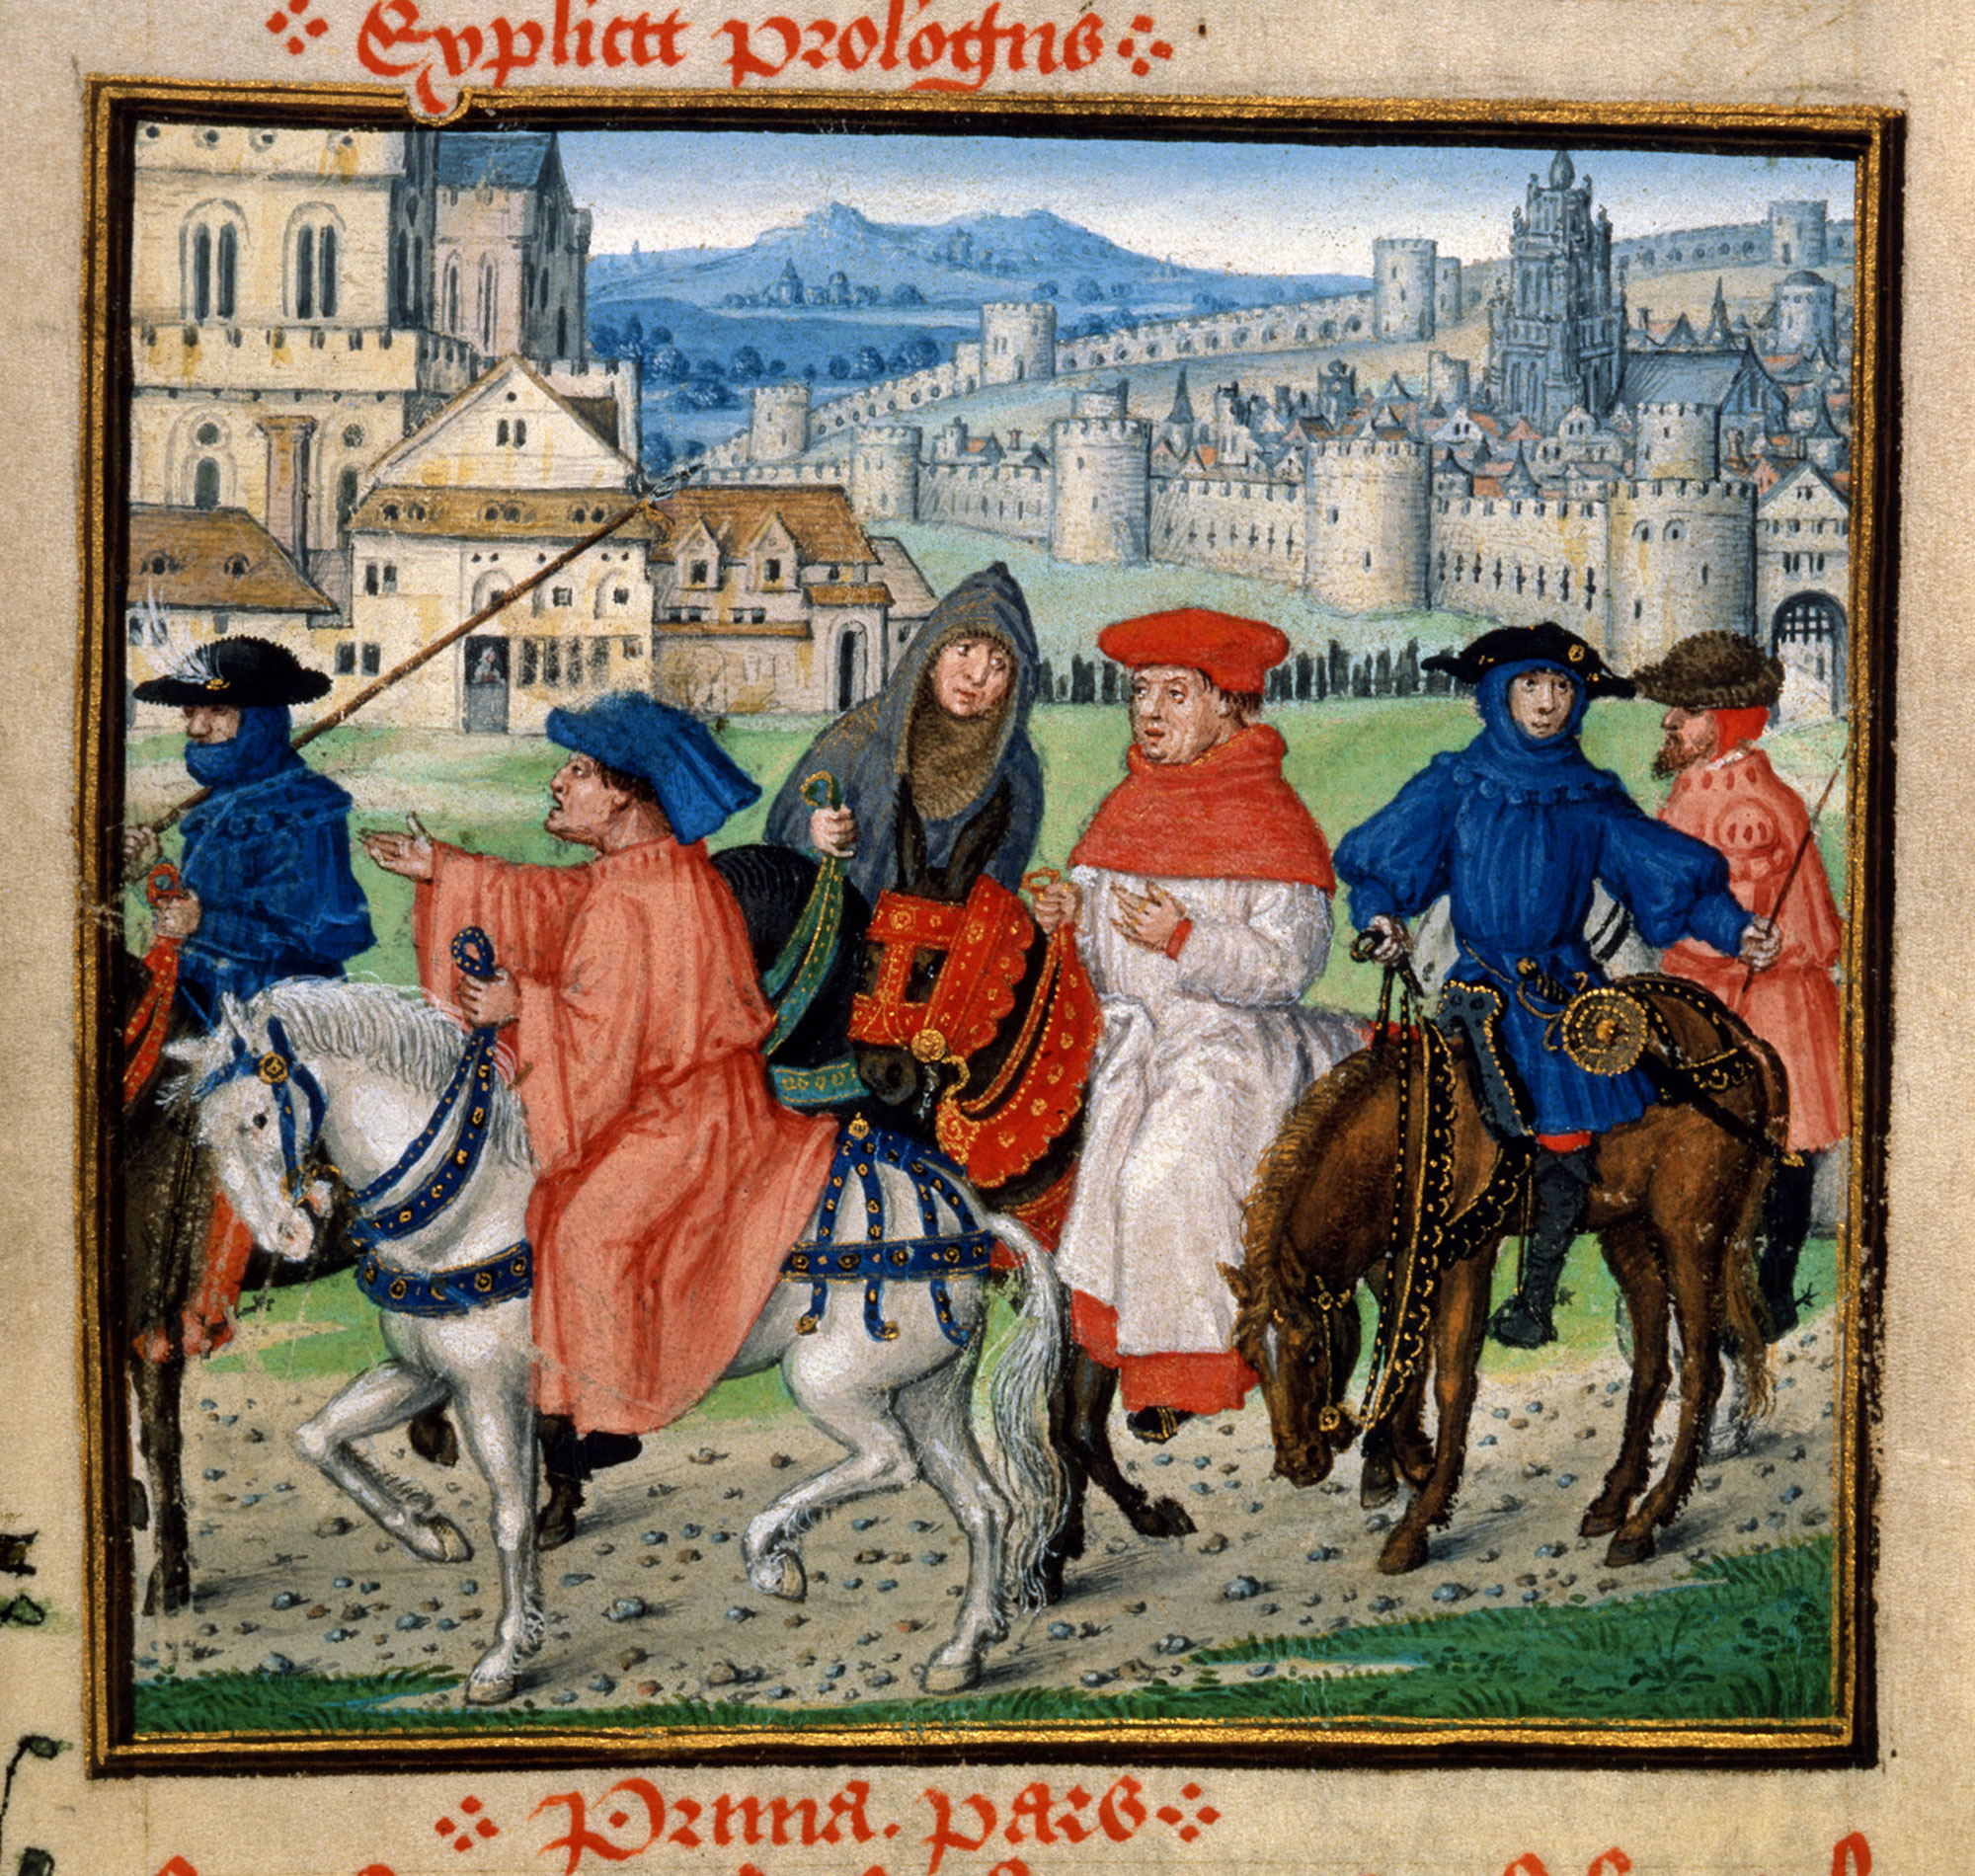 Explicit prologus
Prima. pars